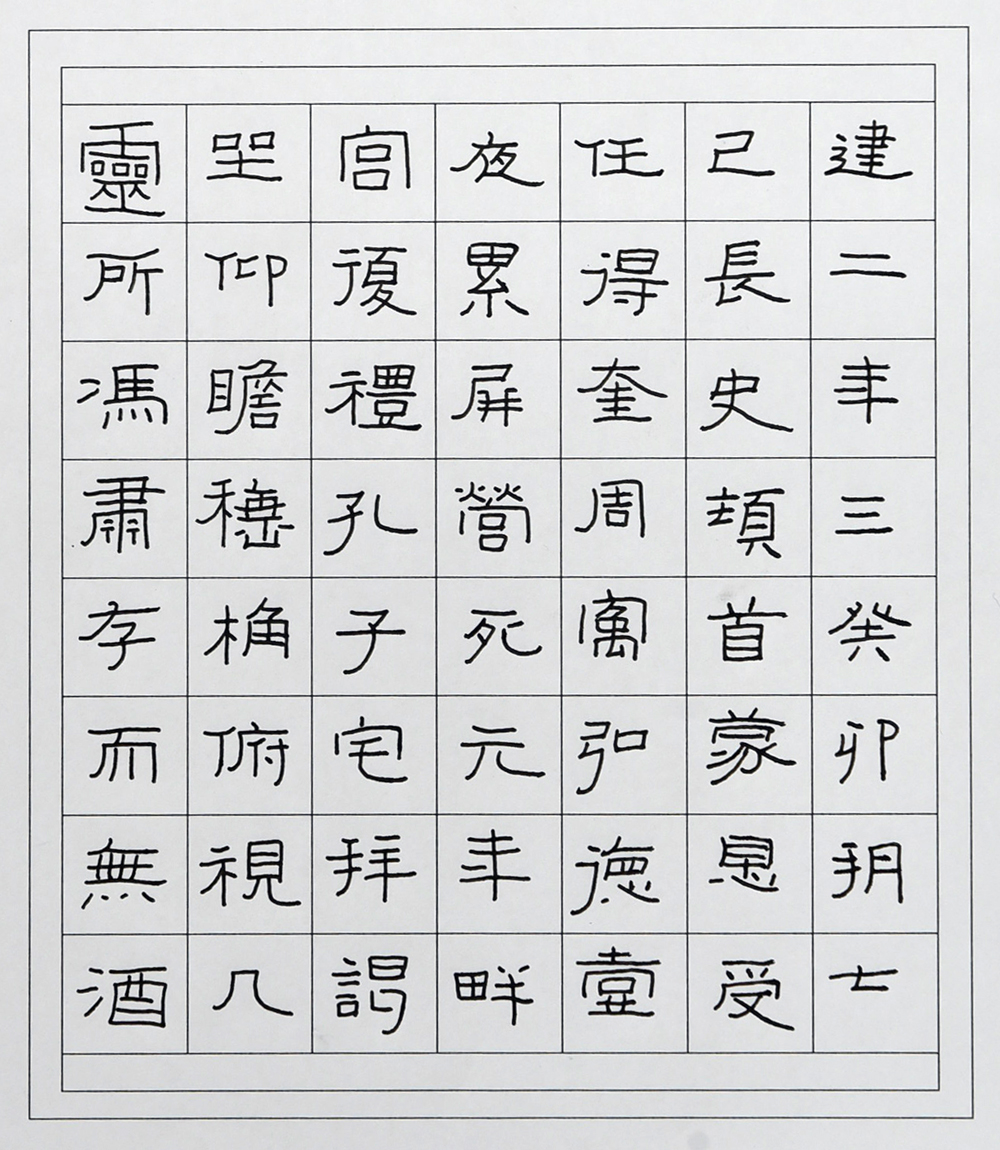 建二年三癸卯朔七
己長史頓首蒙恩受
任得奎周寓弘德壹
夜累屏營死元年畔
宮復禮孔子宅拜謁
坐仰瞻榱桷俯視几
靈所馮肅存而無酒